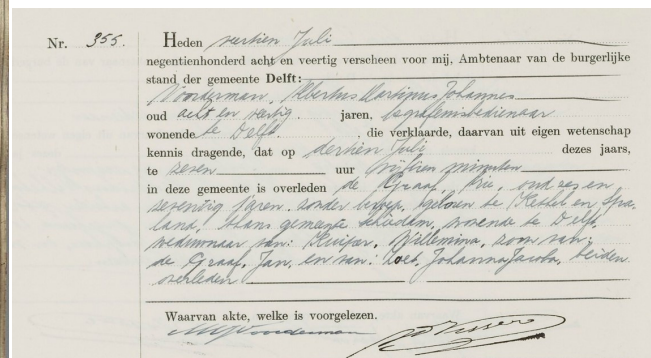 Nr. 355. Heden veertien Juli
negentienhonderd acht en veertig verscheen voor mij, Ambtenaar van de burgerlijke
stand der gemeente Delft:
Noorderman, Albertus Martinus Johannes
oud acht en veertig jaren, begrafenisbedienaar
wonende te Delft, die verklaarde, daarvan uit eigen wetenschap
kennis dragende, dat op dertien Juli dezes jaars,
te zeven uur vijftien minuten
in deze gemeente is overleden de Graaf, Arie, oud zes en
zeventig jaren, zonder beroep, geboren te Kethel en Spa-
land, thans gemeente Schiedam, wonende te Delft,
weduwnaar van: Kuiper, Willemina, zoon van:
de Graaf, Jan, en van: Joes, Johanna Jacoba, beiden
overleden
Waarvan akte, welke is voorgelezen.